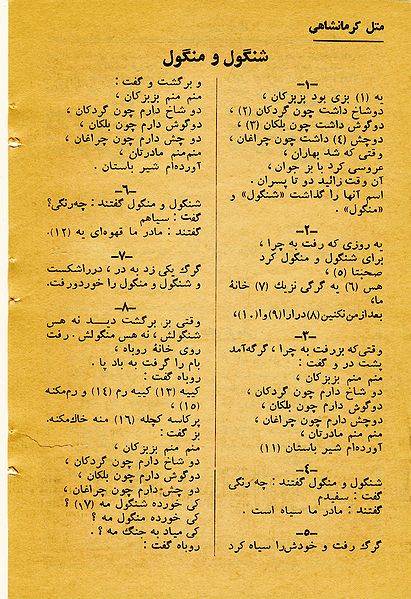 متل کرمانشاهی
شنگول و منگول
–۱–
یه (۱) بزی بود پزبزکان،
دوشاخ داشت چون گردکان (۲)،
دوگوش داشت چون بلکان (۳)،
دوچش (۴) داشت چون چراغان،
وقتی که شد بهاران،
عروسی کرد با بز جوان،
آن وقت زائید دو تا پسران.
اسم آنها را گذاشت «شنگول» و
«منگول».
–۲–
یه روزی که رفت به چرا،
برای شنگول و منگول کرد
صحبتا (۵)،
هس (۶) یه گرگی نزیك (۷) خانهٔ
ما،
بعدازمن‌نکنین(۸)درارا(۹)وا(۱۰)،
–۳–
وقتی‌که بزرفت به چرا، گرگه‌آمد
پشت در و گفت:
منم منم بزبزکان،
دو شاخ دارم چون گردکان،
دوگوش دارم چون بلکان،
دوچش دارم چون چراغان،
منم منم مادرتان،
آورده‌ام شیر باستان (۱۱)
–۴–
شنگول و منگول گفتند: چه رنگی
گفت: سفیدم
گفتند: مادر ما سیاه است.
–۵–
گرگ رفت و خودش‌را سیاه کرد
و برگشت و گفت:
منم منم بزبزکان،
دو شاخ دارم چون گردکان،
دوگوش دارم چون بلکان،
دو چش دارم چون چراغان،
منم‌منم مادرتان،
آورده‌ام شیر باستان.
–۶–
شنگول و منگول گفتند: چه‌رنگی؟
گفت: سیاهم
گفتند: مادر ما قهوه‌ای یه (۱۲).
–۷–
گرگ یکی زد به در، درراشکست
و شنگول و منگول را خوردورفت.
–۸–
وقتی بز برگشت دیــد نه هس
شنگولش، نه هس منگولش. رفت
روی خانهٔ روباه،
بام را گرفت به باد پا.
روباه گفت:
کییه (۱۳) کییه رم (۱۴) و رم‌مکنه
(۱۵)،
پرکاسه کچله (۱۶) منه خاك‌مکنه.
بز گفت:
منم منم بزبزکان،
دو شاخ دارم چون گردکان،
دو گوش دارم چون بلکان،
دو چش‌دارم چون چراغان،
کی خورده شنگول مه (۱۷)؟
کی خورده منگول مه؟
کی میاد به جنگ مه؟.
روباه گفت: